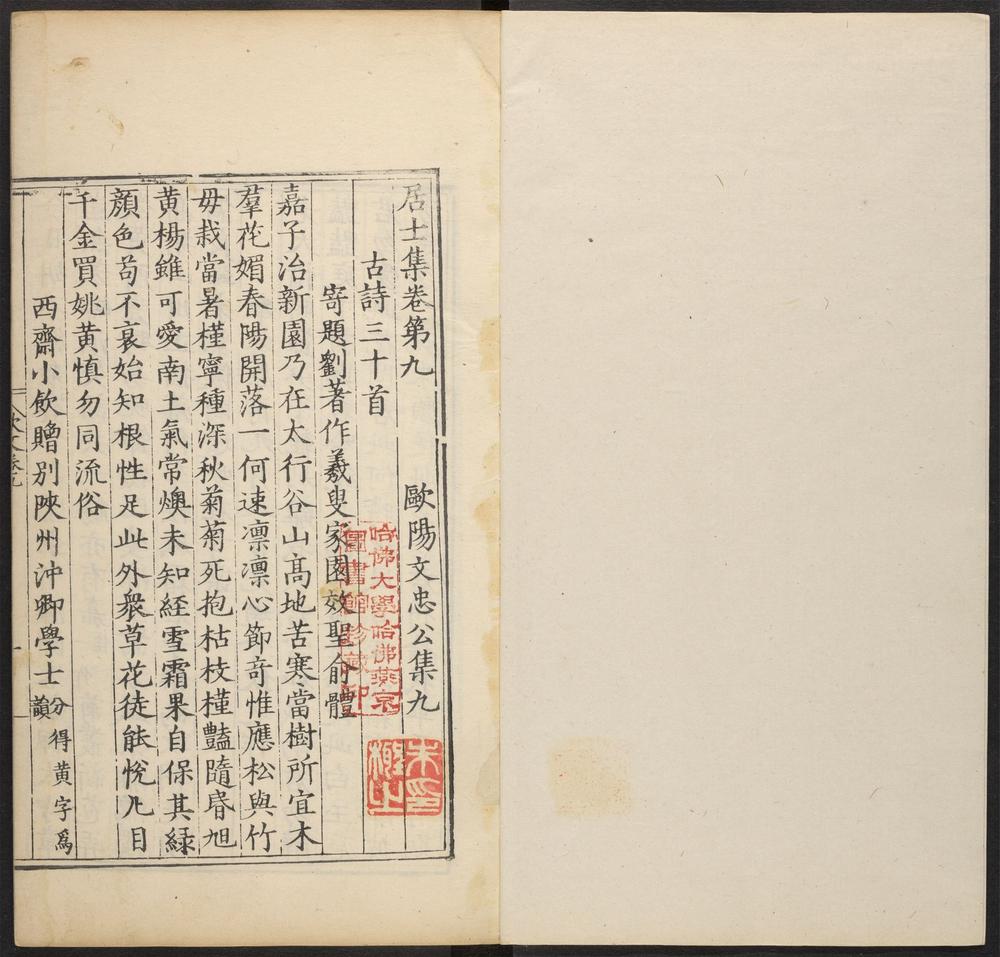 居士集卷第九　歐陽文忠公集九
古詩三十首
寄題劉著作羲叟家園效聖俞體
嘉子治新園乃在太行谷山髙地苦寒當樹所宜木
羣花媚春陽開落一何速凛凛心節竒惟應松與竹
毋栽當暑槿寧種深秋菊菊死抱枯枝槿豔隨昏旭
黄楊雖可愛南土氣常燠未知經雪霜果自保其緑
顔色苟不衰始知根性足此外衆草花徒能恱凡目
千金買姚黄慎勿同流俗
西齋小飲贈别陝州沖卿學士 分得黄字爲韻
哈佛大學哈佛燕京
圖書館珍藏印